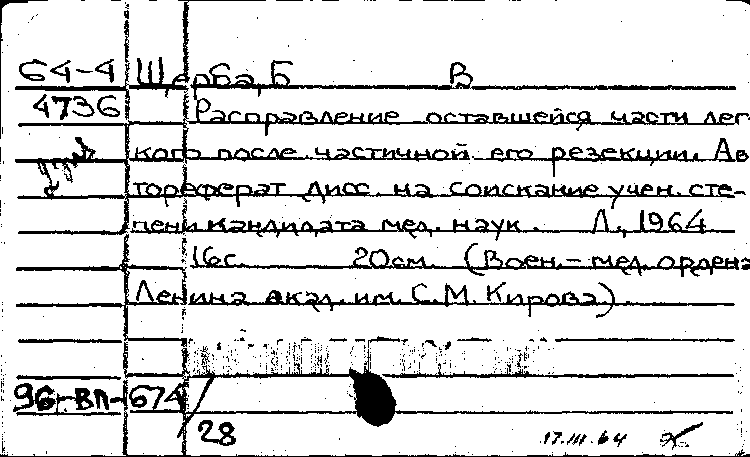 64-4 Щерба, Б В
4736 Расправление оставшейся части лег-
кого после частичной его резекции. Ав
тореферат дисс. на соискание учен. сте-
пени кандидата мед. наук. Л., 1964
16с. 20см. (Воен.-мед. ордена
Ленина акад. им. С.М. Кирова)
96-ВЛ-674/
28
17.III.64